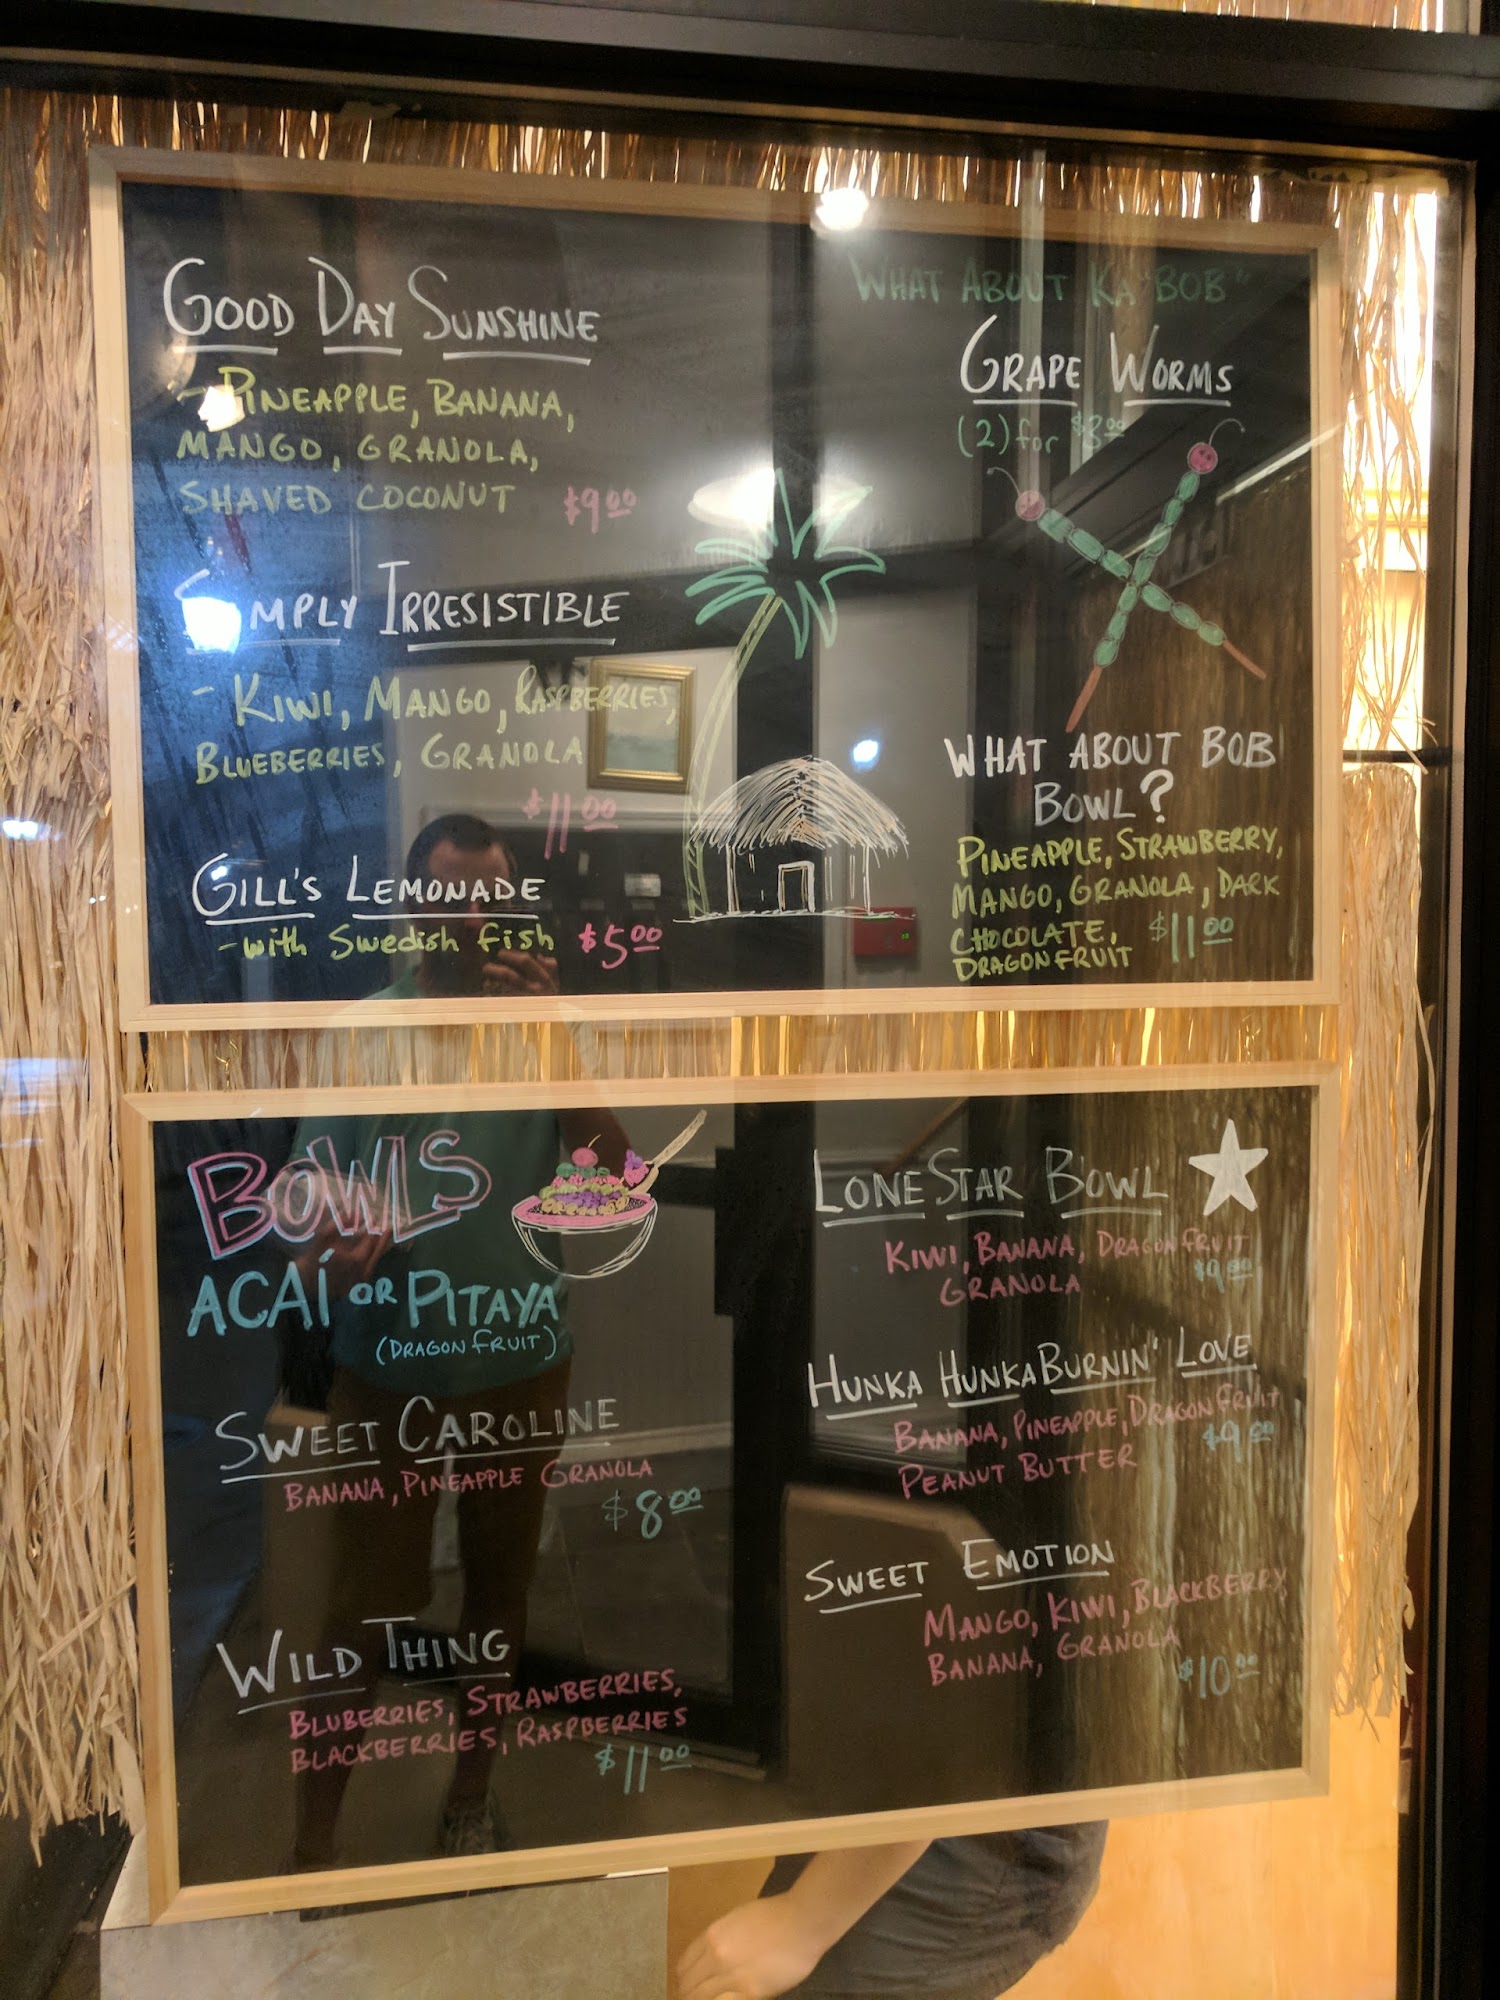 GOOD DAY SUNSHINE
- PINEAPPLE, BANANA,
MANGO, GRANOLA,
SHAVED COCONUT $9.00
SIMPLY IRRESISTIBLE
- KIWI, MANGO, RASPBERRIES,
BLUEBERRIES, GRANOLA
$11.00
GILL'S LEMONADE
- with Swedish fish $5.00
WHAT ABOUT KA"BOB"
GRAPE WORMS
(2) for $3.00
WHAT ABOUT BOB
BOWL?
PINEAPPLE, STRAWBERRY,
MANGO, GRANOLA, DARK
CHOCOLATE, $11.00
DRAGONFRUIT
BOWLS
ACAÍ OR PITAYA
(DRAGON FRUIT)
SWEET CAROLINE
BANANA, PINEAPPLE GRANOLA
$8.00
WILD THING
BLUBERRIES, STRAWBERRIES,
BLACKBERRIES, RASPBERRIES
$11.00
LONE STAR BOWL
KIWI, BANANA, DRAGONFRUIT
GRANOLA $9.00
HUNKA HUNKA BURNIN' LOVE
BANANA, PINEAPPLE, DRAGONFRUIT
PEANUT BUTTER $9.00
SWEET EMOTION
MANGO, KIWI, BLACKBERRY
BANANA, GRANOLA
$10.00